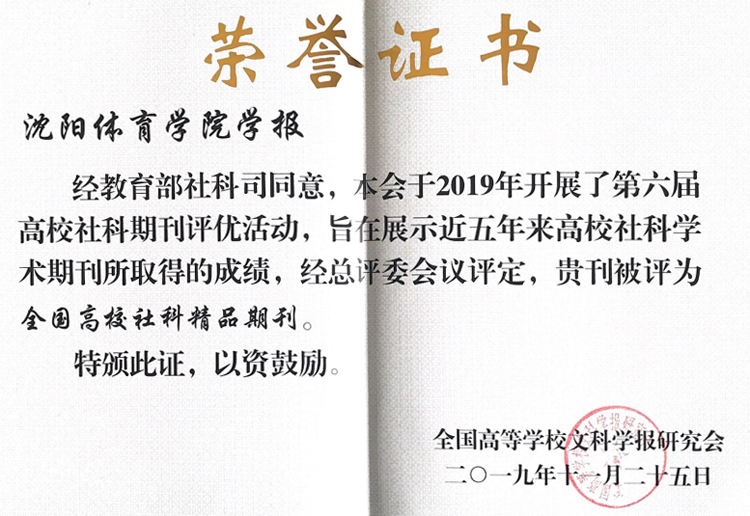 荣誉证书
沈阳体育学院学报
经教育部社科司同意，本会于2019年开展了第六届
高校社科期刊评优活动，旨在展示近五年来高校社科学
术期刊所取得的成绩，经总评委会议评定，贵刊被评为
全国高校社科精品期刊。
特颁此证，以资鼓励。
全国高等学校文科学报研究会
二〇一九年十一月二十五日